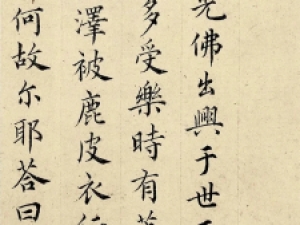 光佛出興于世
多受樂時有
澤被鹿皮衣
何故尔耶荅曰